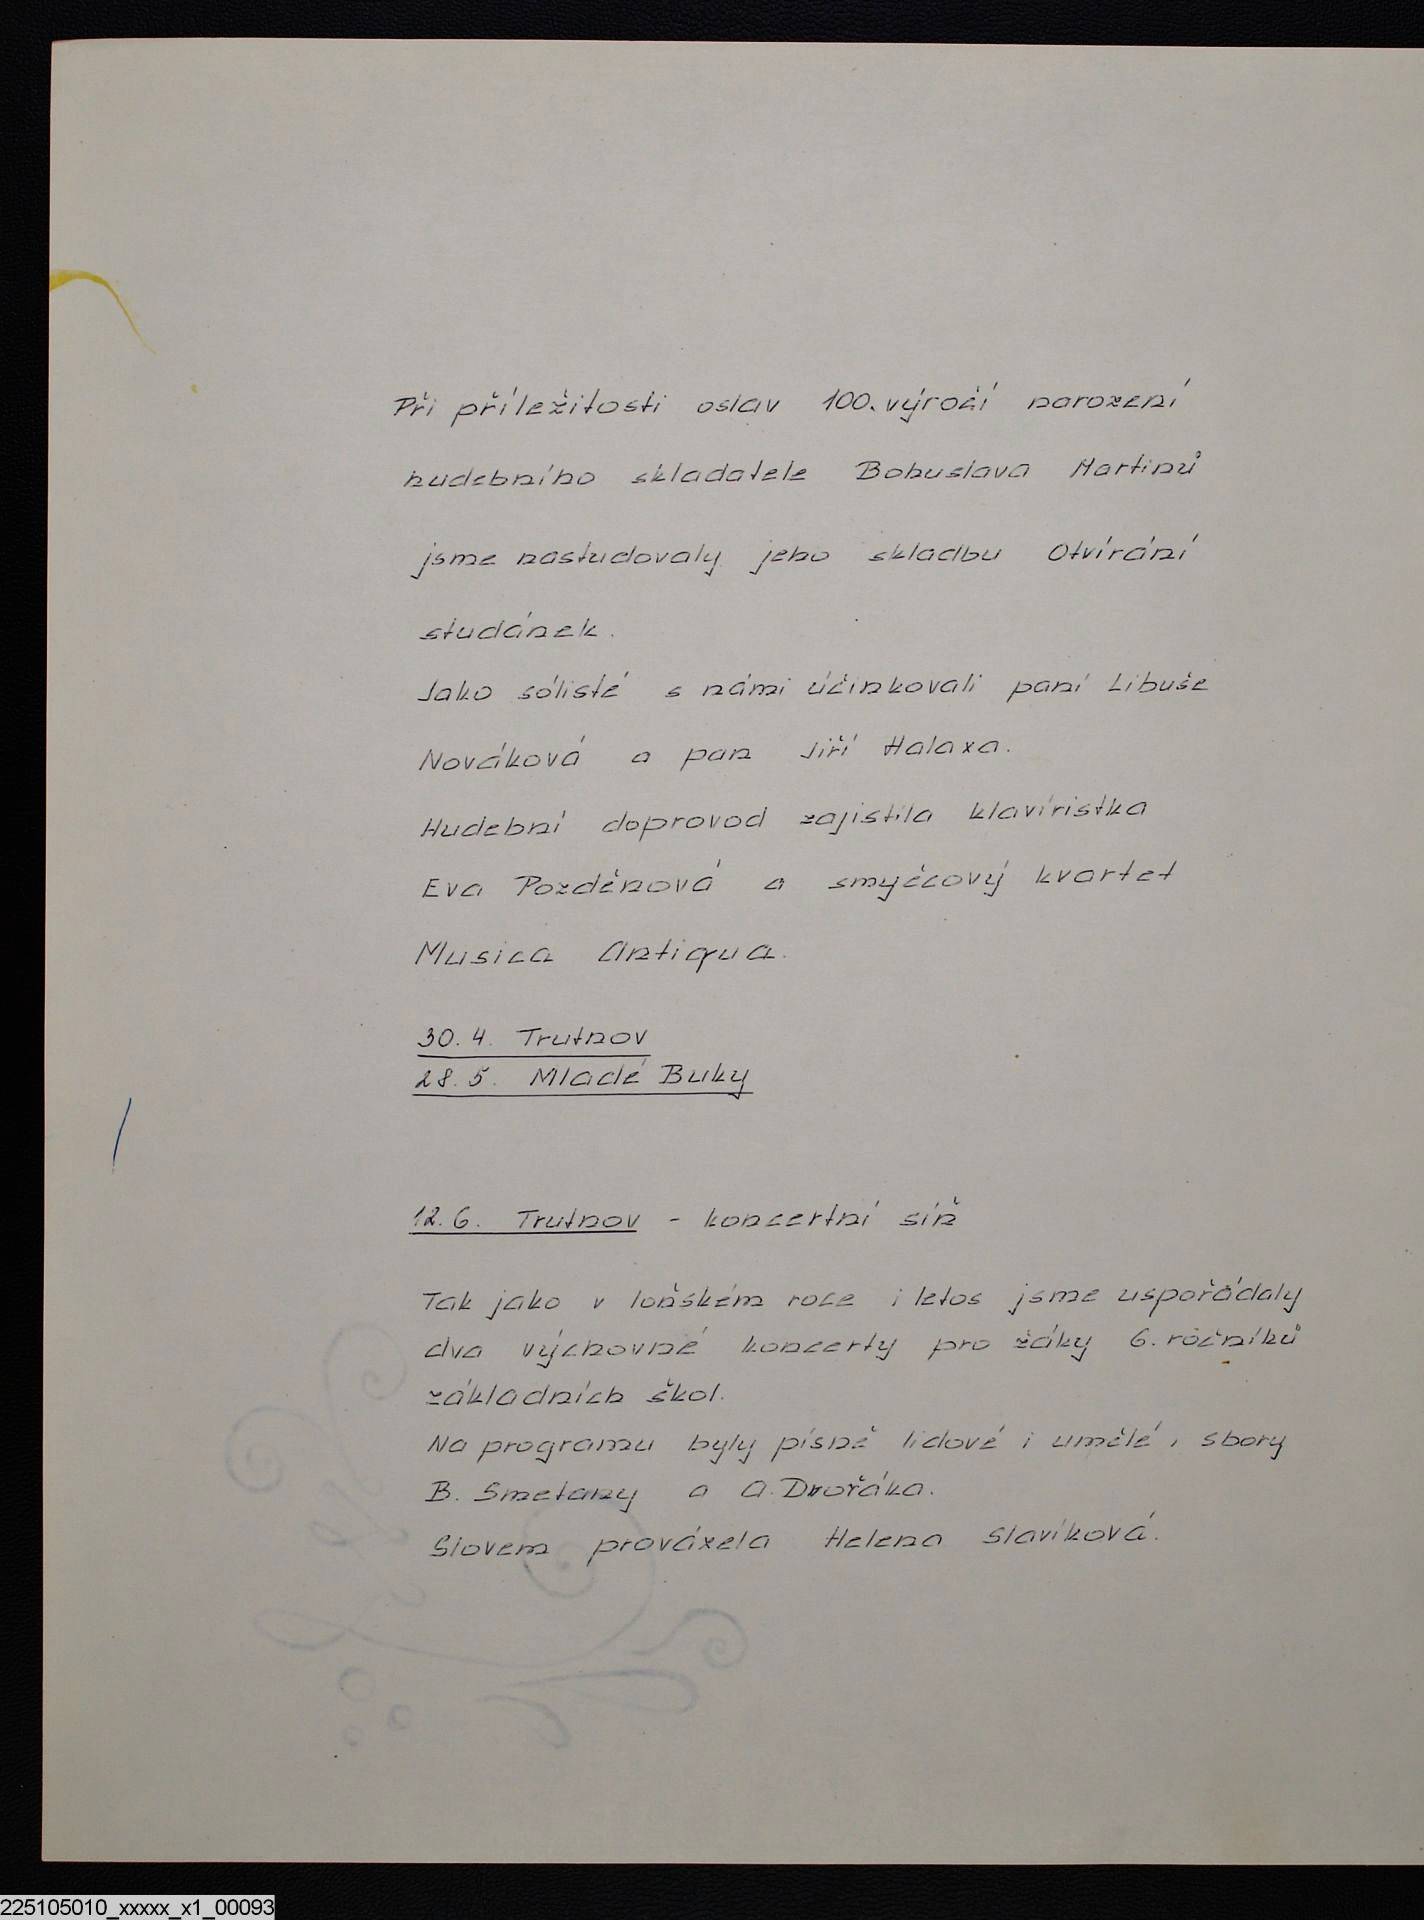 Při příležitosti oslav 100. výročí narození
hudebního skladatele Bohuslava Martinů
jsme nastudovaly jeho skladbu Otvírání
studánek.
Jako sólisté s námi účinkovali paní Libuše
Nováková a pan Jiří Halaxa.
Hudební doprovod zajistila klavíristka
Eva Pozděnová a smyčcový kvartet
Musica Antiqua.
30. 4. Trutnov
28. 5. Mladé Buky
12. 6. Trutnov - koncertní síň
Tak jako v loňském roce i letos jsme uspořádaly
dva výchovné koncerty pro žáky 6. ročníků
základních škol.
Na programu byly písně lidové i umělé, sbory
B. Smetany a A. Dvořáka.
Slovem provázela Helena Slavíková.
225105010_xxxxx_x1_00093